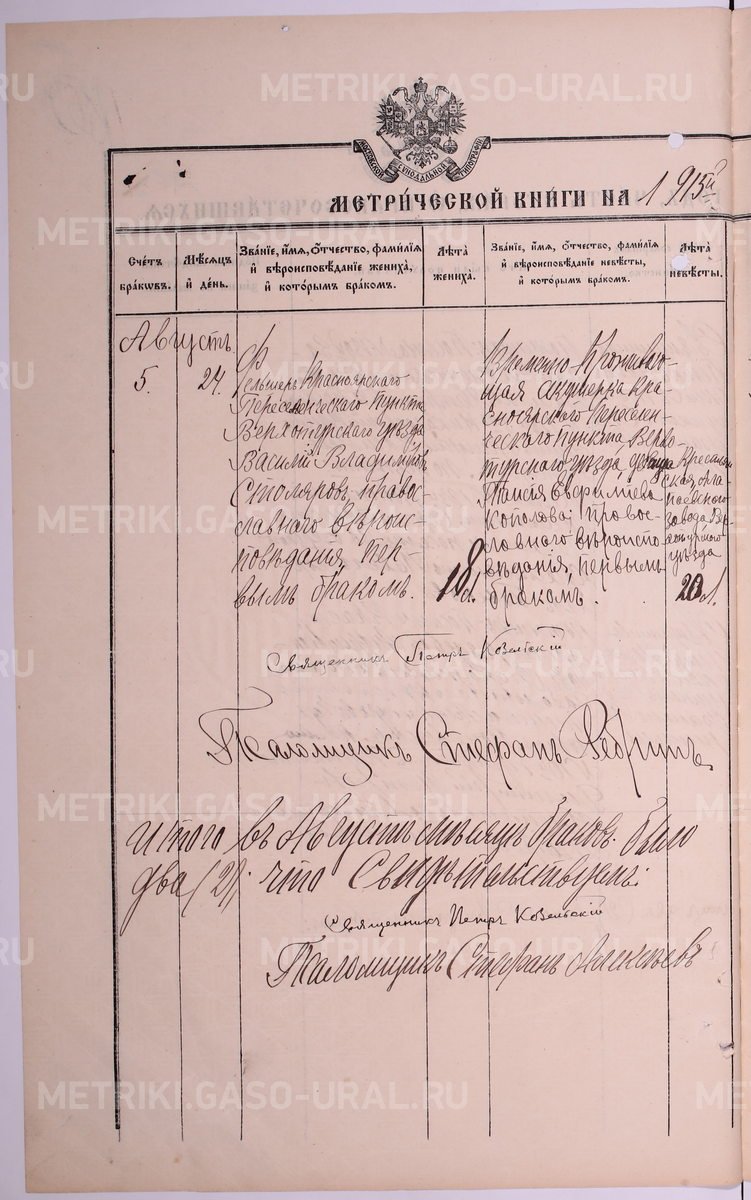 METRIKI.GASO-URAL.RU
МОСКОВСКОЙ СѴНОДАЛЬНОЙ ТИПОГРАФІИ
МЕТРИ́ЧЕСКОЙ КНИ́ГИ НА 1915й
Сче́тъ бра́кѡвъ.
Мѣ́сѧцъ и҆ де́нь.
Зва́нїе, и҆́мѧ, ѻ҆́тчество, фами́лїѧ и҆ вѣроисповѣ́данїе жениха̀, и҆ кото́рымъ бра́комъ.
Лѣ́та жениха̀.
Зва́нїе, и҆́мѧ, ѻ҆́тчество, фами́лїѧ и҆ вѣроисповѣ́данїе невѣ́сты, и҆ кото́рымъ бра́комъ.
Лѣ́та невѣ́сты.
Августъ
5.
24.
Фельшеръ Красноярскаго
Переселенческаго Пункта
Верхотурскаго уѣзда
Василій Владиміровъ
Столяровъ, право-
славнаго вѣроис-
повѣданія, пер-
вымъ бракомъ.
18 л.
Временно-Прожива-
ющая акушерка кра-
сноярскаго Переселен-
ческаго Пункта Верхо-
турскаго уѣзда, девица
Таисія Евфиміева
православнаго вѣроиспо-
вѣданія, первымъ
бракомъ.
Крестьян-
ская
заводa
уѣзда
20 л.
Священникъ Петръ Козельскій
Псаломщикъ Стефанъ
итого въ Августѣ мѣсяцѣ браковъ было
два (2); что Свидѣтельствуемъ:
Священникъ Петръ Козельскій
Псаломщикъ Стефанъ